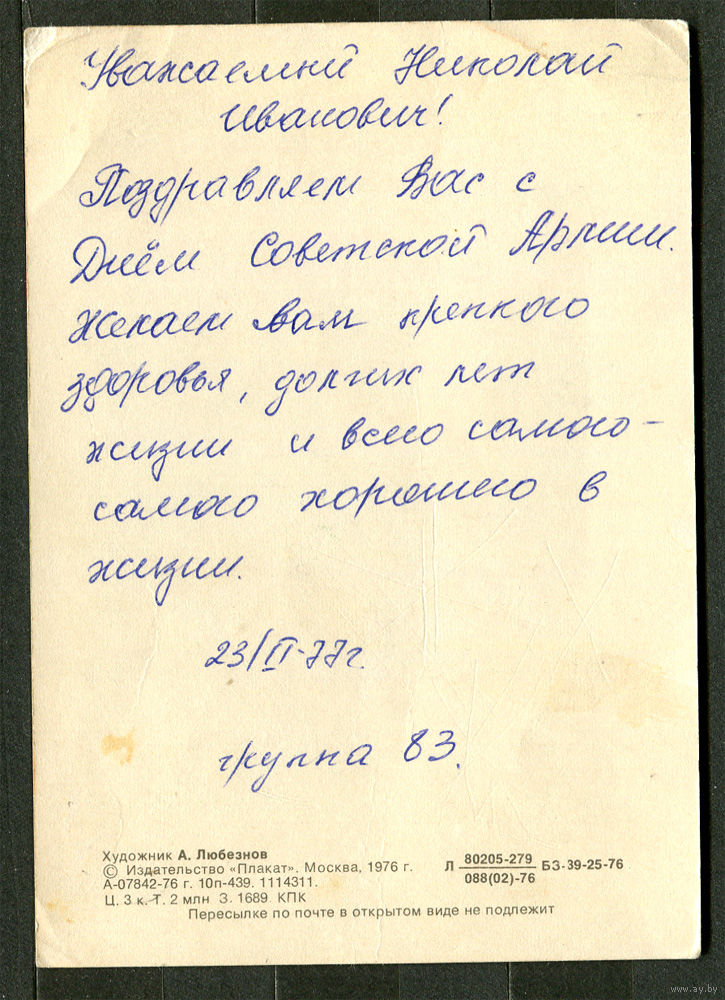 Уважаемый Николай
Иванович!
Поздравляем Вас с
Днём Советской Армии.
Желаем Вам крепкого
здоровья, долгих лет
жизни и всего самого-
самого хорошего в
жизни.
23/II-77г.
группа 83.
Художник А. Любезнов
© Издательство «Плакат». Москва, 1976 г.
А-07842-76 г. 10п-439. 1114311.
Ц. 3 к. Т. 2 млн З. 1689. КПК
Л 80205-279 БЗ-39-25-76
088(02)-76
Пересылке по почте в открытом виде не подлежит
www.ay.by